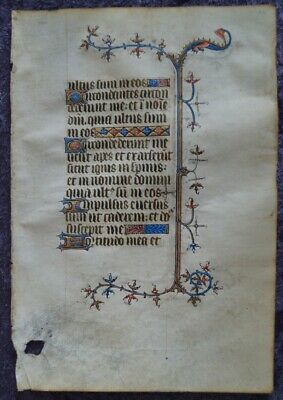 ultus sum in eos
Circondantes circon
dederunt me: et i noie
dm̄. quia ultus sum
in eos
Circondederunt me
sicut apes et exarserūt
sicut ignis in spinis:
et in nomine domini
quia ult⁹ sū in eos
Impulsus eversus
sum ut caderem: et dn̄s
suscepit me
Fortitudo mea et